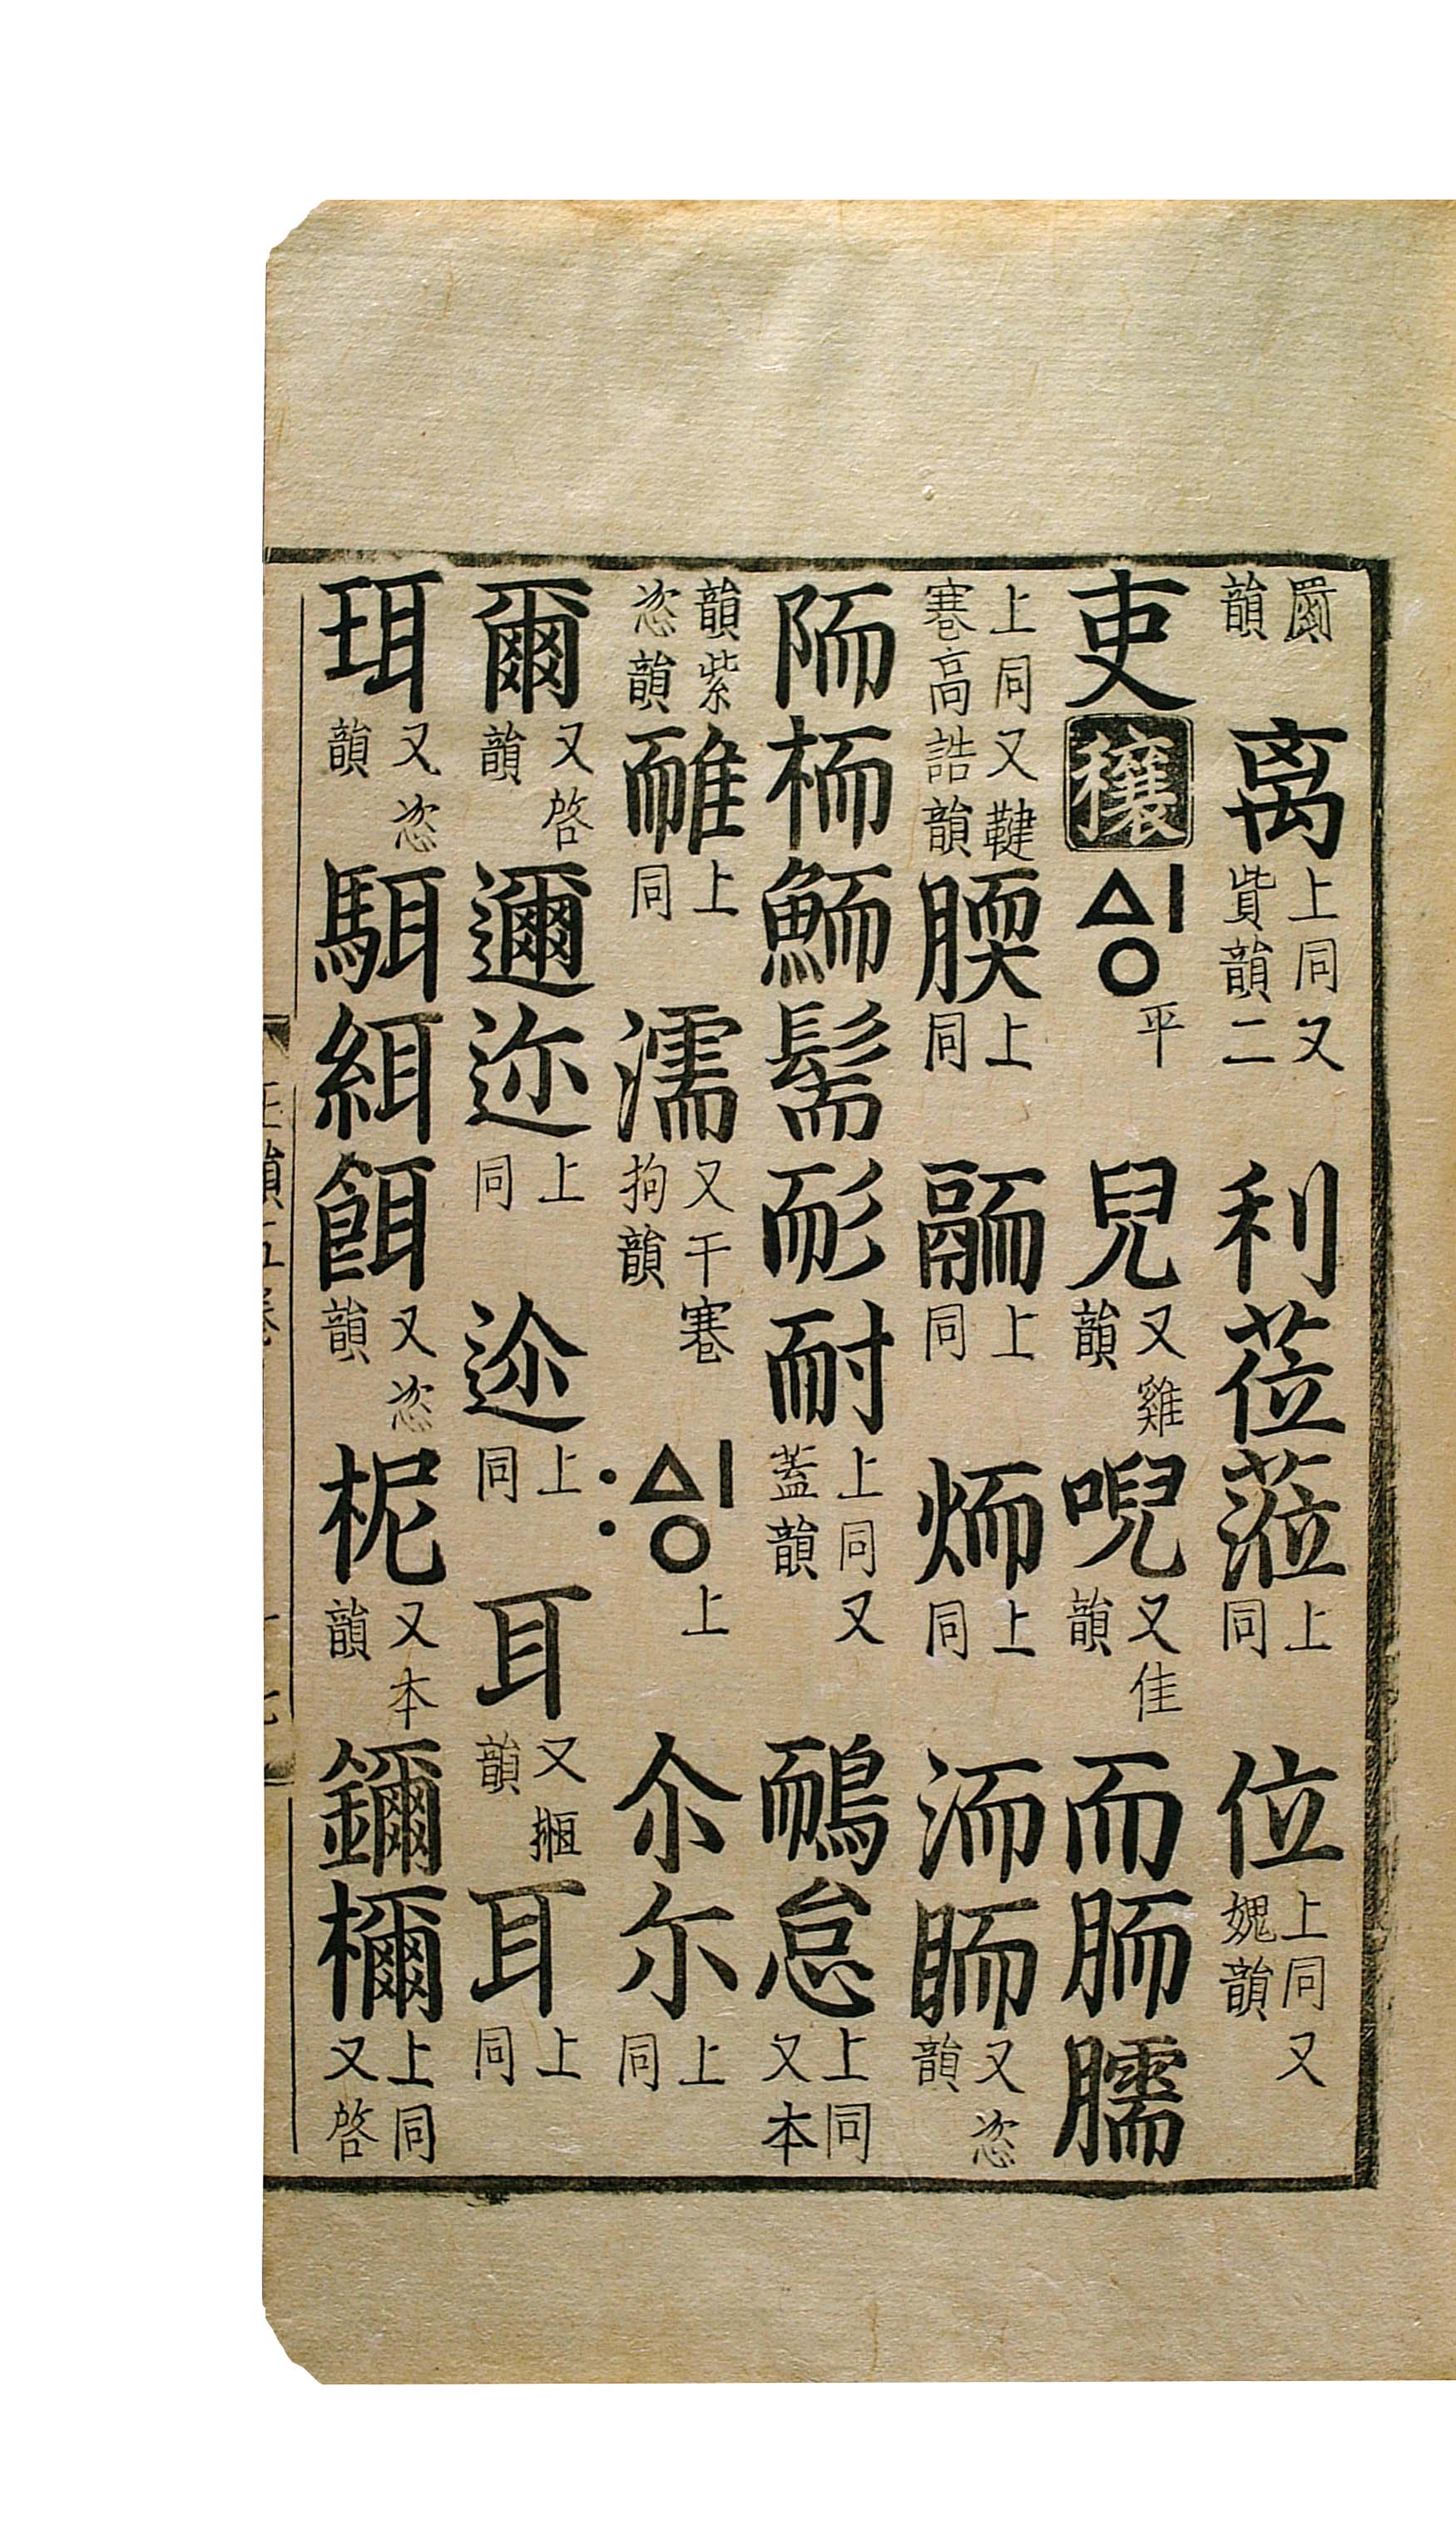 罽韻 离上同又貲韻二 利莅蒞上同 位上同又媿韻
吏穰ᅀᅵᆼ平 兒又雞韻唲又佳韻而胹臑
上同又鞬寋高誥韻腝上同 上同 上同 洏又恣韻
陑栭鮞髵耏耐上同又蓋韻 鴯怠上同又本
韻紫恣韻上同 濡又干寋拘韻 〯ᅀᅵᆼ上 尒尓上同
爾又啓韻邇迩上同 上同 耳又韻耳上同
珥又恣韻駬䋙餌又恣韻柅又本韻鑈檷上同又啓